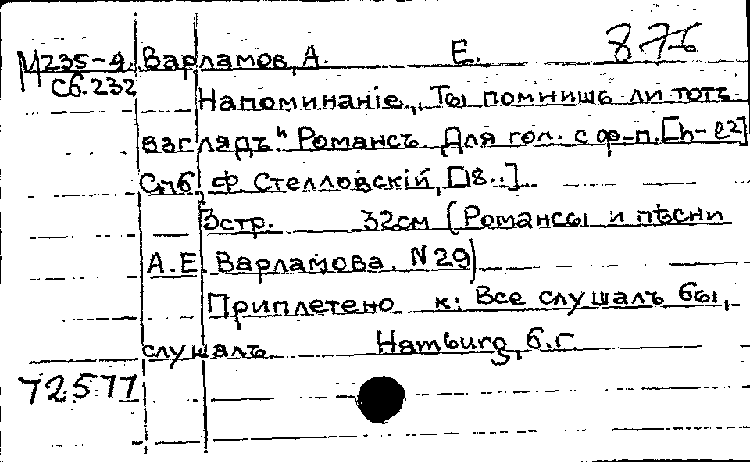 876
М235-9 Варламов, А. Е.
Сб.232
Напоминаніе „Ты помнишь ли тотъ
взглядъ" Романсъ Для гол. с ф-п. [h-e2]
Спб Ф Стелловскій, [18..]
3стр. 32см (Романсы и пѣсни
А.Е. Варламова. N29)
Приплетено к: Все слушалъ бы,
слушалъ. Hamburg, б.г.
72577